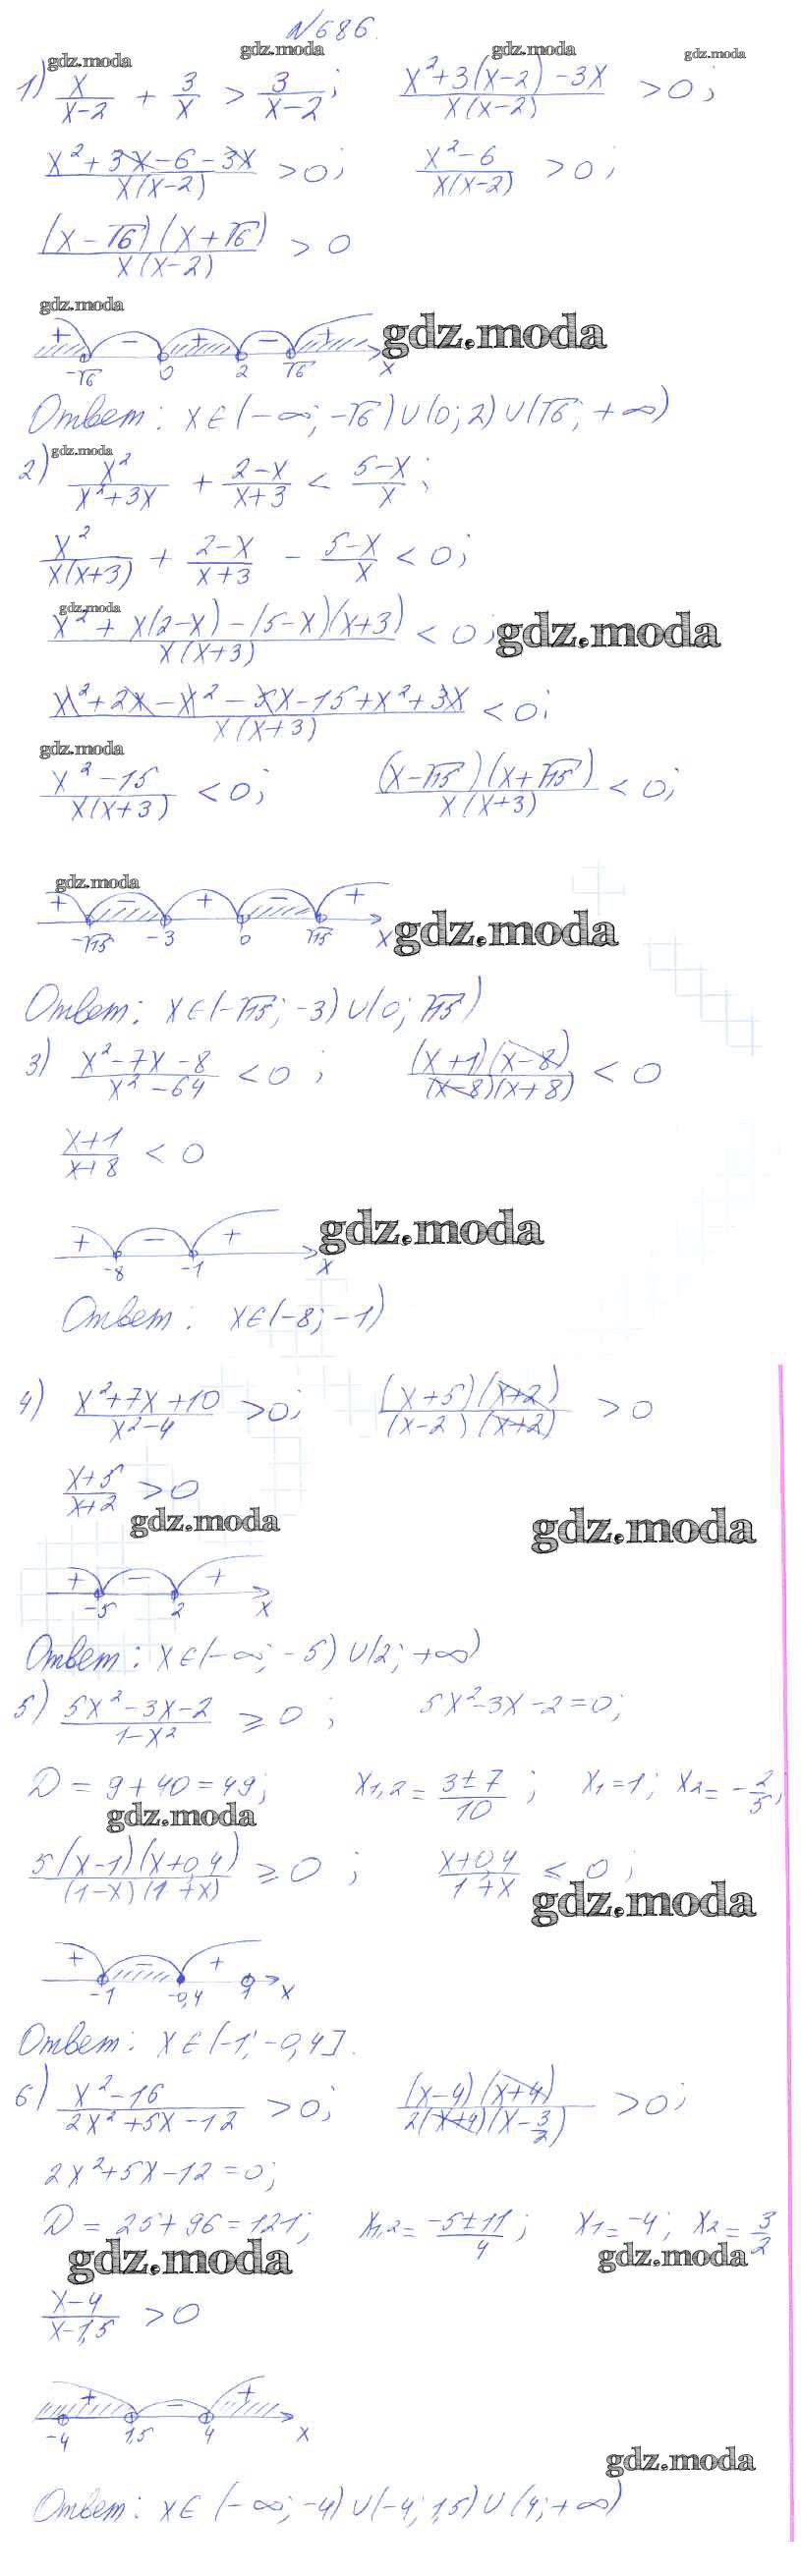 №686.
gdz.moda gdz.moda gdz.moda gdz.moda
1) x/(x-2) + 3/x > 3/(x-2); (x²+3(x-2)-3x)/(x(x-2)) >0;
(x²+3x-6-3x)/(x(x-2)) >0; (x²-6)/(x(x-2)) >0;
((x-√6)(x+√6))/(x(x-2)) > 0
gdz.moda
+ - + - + gdz.moda
-√6 0 2 √6 x
Ответ: x∈(-∞; -√6)∪(0; 2)∪(√6; +∞)
gdz.moda
2) x²/(x²+3x) + (2-x)/(x+3) < (5-x)/x;
x²/(x(x+3)) + (2-x)/(x+3) - (5-x)/x < 0;
gdz.moda
(x²+x(2-x)-(5-x)(x+3))/(x(x+3)) < 0; gdz.moda
(x²+2x-x²-5x-15+x²+3x)/(x(x+3)) <0;
gdz.moda
(x²-15)/(x(x+3)) <0; ((x-√15)(x+√15))/(x(x+3)) <0;
gdz.moda
+ - + - +
-√15 -3 0 √15 x gdz.moda
Ответ: x∈(-√15; -3)∪(0; √15)
3) (x²-7x-8)/(x²-64) <0; ((x+1)(x-8))/((x-8)(x+8)) < 0
(x+1)/(x+8) < 0
+ - + gdz.moda
-8 -1 x
Ответ: x∈(-8; -1)
4) (x²+7x+10)/(x²-4) >0; ((x+5)(x+2))/((x-2)(x+2)) >0
(x+5)/(x+2) >0
gdz.moda gdz.moda
+ - +
-5 2 x
Ответ: x∈(-∞; -5)∪(2; +∞)
5) (5x²-3x-2)/(1-x²) ≥ 0; 5x²-3x-2=0;
D = 9+40=49; x1,2= (3±7)/10; x1=1; x2= -2/5;
gdz.moda
(5(x-1)(x+0,4))/((1-x)(1+x)) ≥0; (x+0,4)/(1+x) ≤ 0;
gdz.moda
+ - +
-1 -0,4 1 x
Ответ: x∈(-1; -0,4].
6) (x²-16)/(2x²+5x-12) >0; ((x-4)(x+4))/(2(x+4)(x-3/2)) >0;
2x²+5x-12=0;
D = 25+96=121; x1,2= (-5±11)/4; x1=-4; x2= 3/2
gdz.moda gdz.moda
(x-4)/(x-1,5) >0
+ - +
-4 1,5 4 x
gdz.moda
Ответ: x∈(-∞; -4)∪(-4; 1,5)∪(4; +∞)